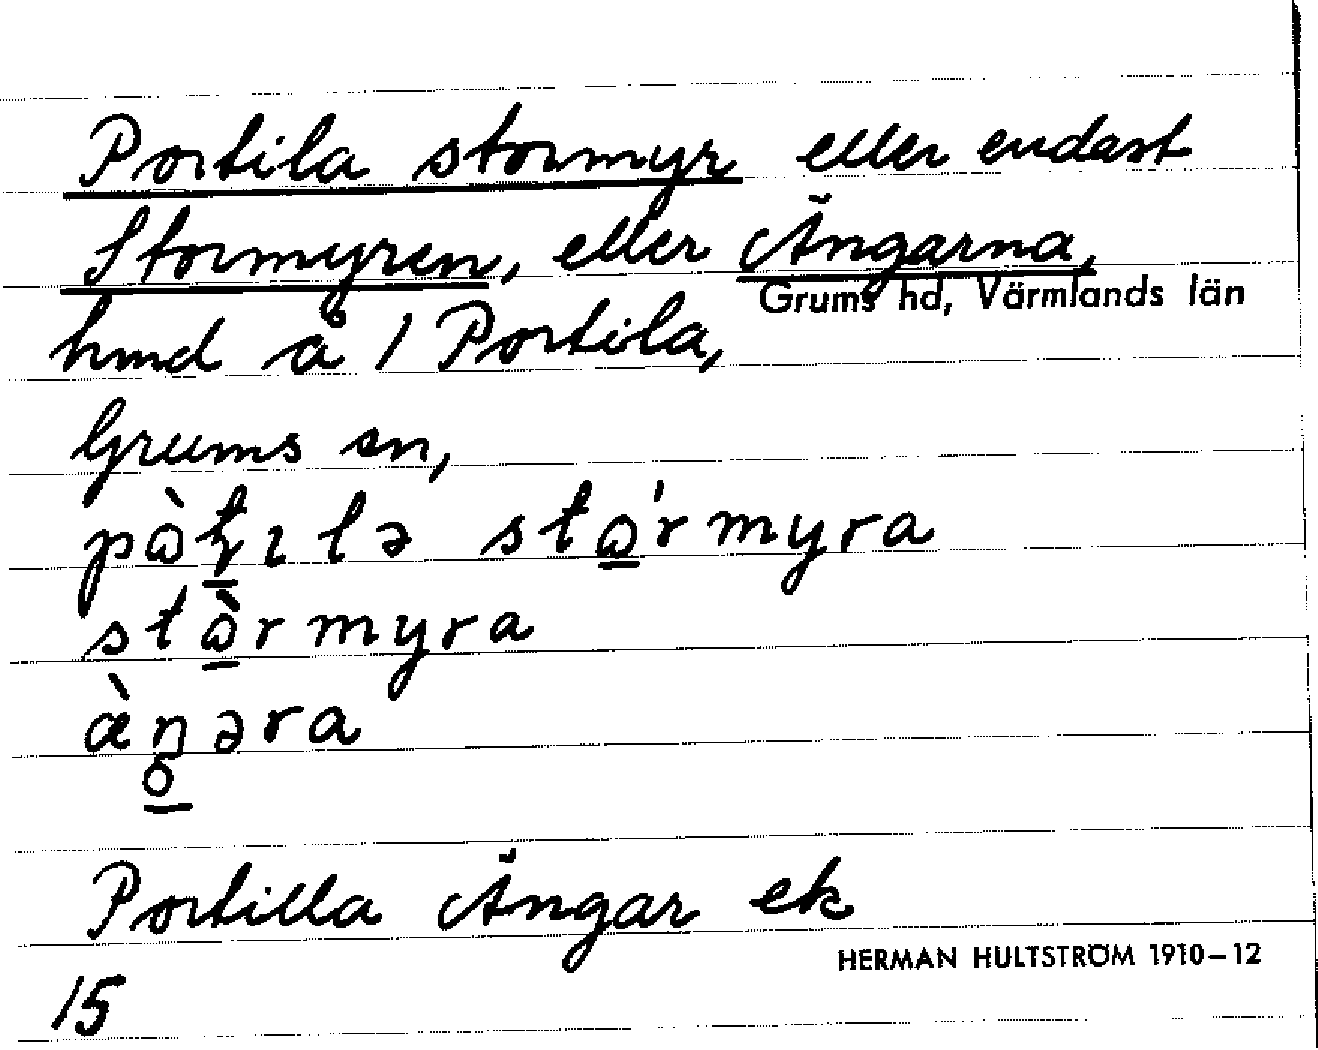 Portila stormyr eller endast
Stormyren, eller Ängarna,
Grums hd, Värmlands län
hmd å 1 Portila,
Grums sn,
stor̀myra
Portilla Ängar ek
HERMAN HULTSTRÖM 1910–12
15